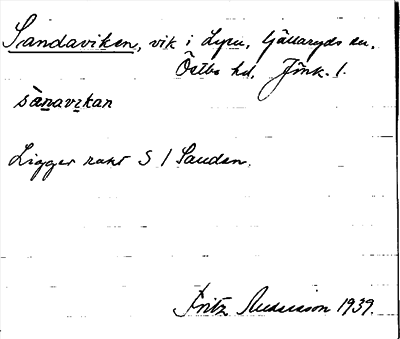 Sandaviken, vik i Lyen, Gällaryds sn.
Östbo hd, Jönk. l.
sànavikan
Ligger rakt S / Sandön.
Fritz Andersson 1939.